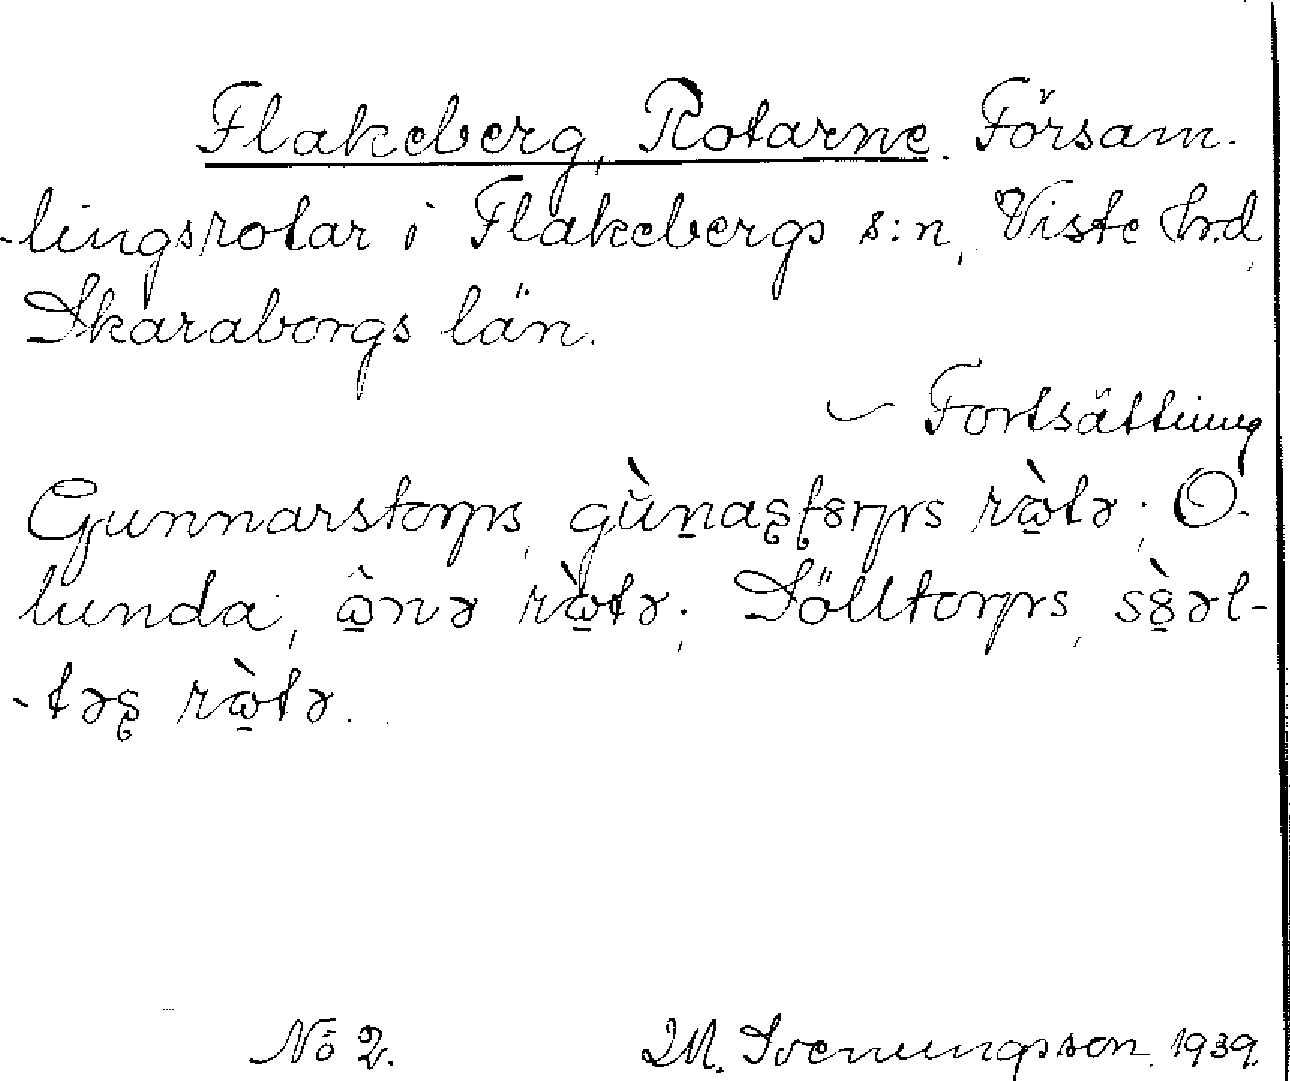 Flakeberg, Rotarne. Försam-
-lingsrotar i Flakebergs s:n, Viste hrd,
Skaraborgs län.
~ Fortsättning
Gunnarstorps, gùn̠aʂʈɞrps rὼ̠tə; O-
lunda, ὼ̠nə rὼ̠tə; Sölltorps, sɞ̠̀əl-
-təʂ rὼ̠tə.
No 2. M. Svenungsson. 1939.